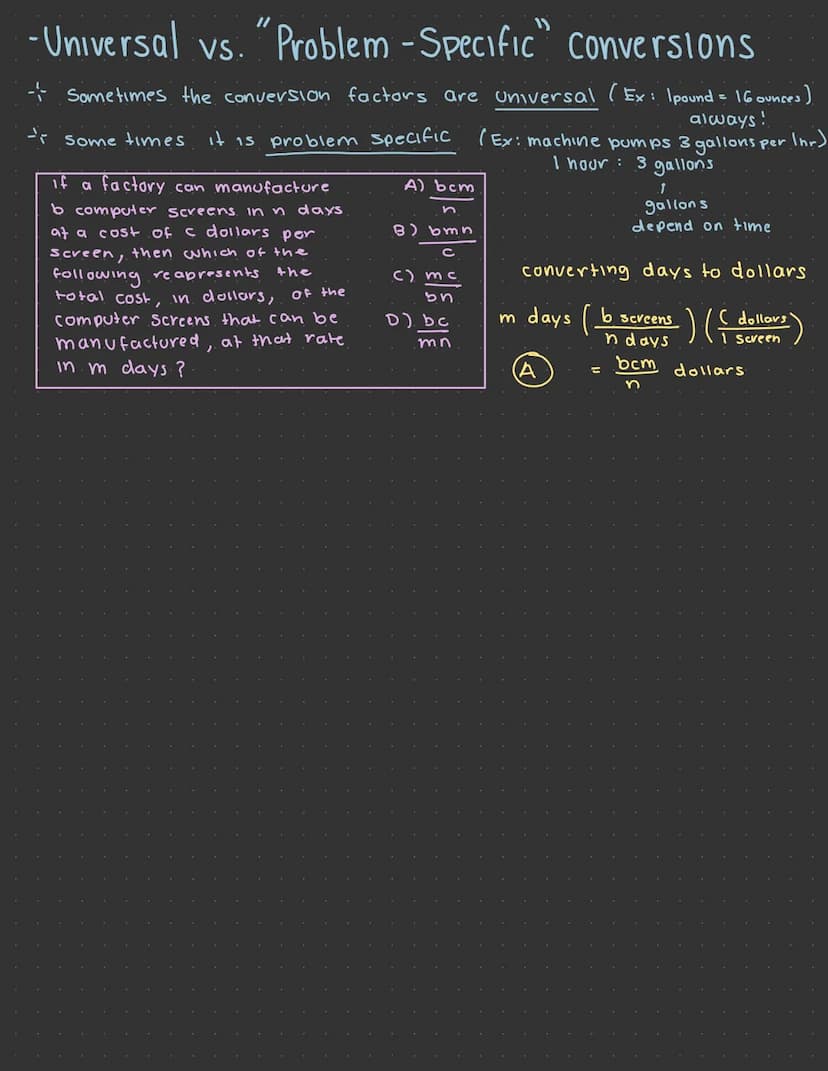 -Universal vs. "Problem-Specific" conversions
Sometimes the conversion factors are universal (Ex: 1pound = 16 ounces)
always!
Some times it is problem specific (Ex: machine pumps 3 gallons per 1hr)
1 hour : 3 gallons
gallons
depend on time
If a factory can manufacture
b computer screens in n days
at a cost of c dollars per
screen, then which of the
following reapresents the
total cost, in dollars, of the
computer screens that can be
manufactured, at that rate
in m days?
A) bcm
n
B) bmn
c
C) mc
bn
D) bc
mn
converting days to dollars
m days (b screens / n days) (C dollars / 1 screen)
A = bcm / n dollars